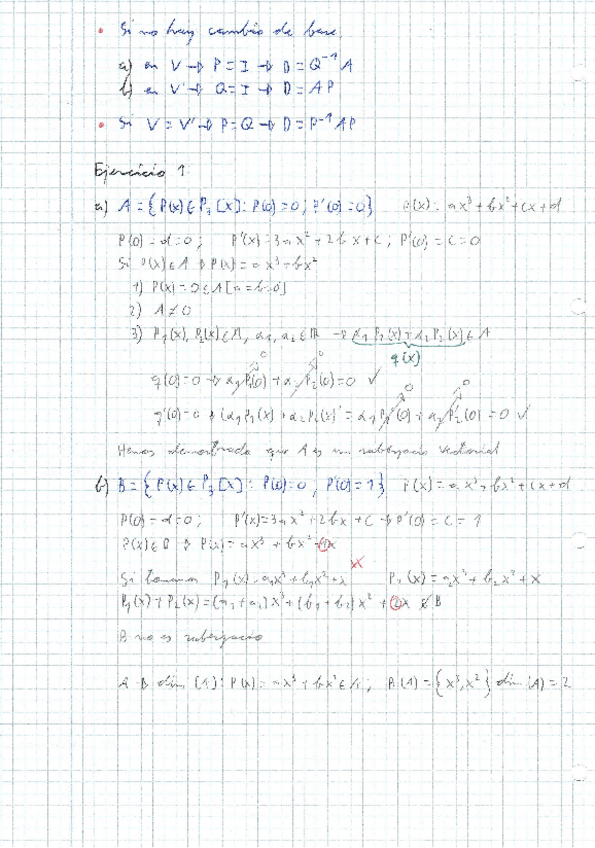 • Si no hay cambio de base
a) en V → P = I → D = Q⁻¹A
b) en V' → Q = I → D = AP
• Si V = V' → P = Q → D = P⁻¹AP
Ejercicio 1
a) A = {P(x) ∈ P₃[x] : P(0) = 0 ; P'(0) = 0} P(x) = ax³ + bx² + cx + d
P(0) = d = 0 ; P'(x) = 3ax² + 2bx + c ; P'(0) = c = 0
Si P(x) ∈ A → P(x) = ax³ + bx²
1) P(x) = 0 ∈ A [a = b = 0]
2) A ≠ 0
3) P₁(x), P₂(x) ∈ A, α₁, α₂ ∈ R → α₁P₁(x) + α₂P₂(x) ∈ A
q(x)
q(0) = 0 → α₁P₁(0) + α₂P₂(0) = 0 ✓
q'(0) = 0 → (α₁P₁(x) + α₂P₂(x))' = α₁P₁'(0) + α₂P₂'(0) = 0 ✓
Hemos demostrado que A es un subespacio vectorial
b) B = {P(x) ∈ P₃[x] : P(0) = 0 ; P'(0) = 1} P(x) = ax³ + bx² + cx + d
P(0) = d = 0 ; P'(x) = 3ax² + 2bx + c → P'(0) = c = 1
P(x) ∈ B → P(x) = ax³ + bx² + 1x
Si tomamos P₁(x) = a₁x³ + b₁x² + x P₂(x) = a₂x³ + b₂x² + x
P₁(x) + P₂(x) = (a₁ + a₂)x³ + (b₁ + b₂)x² + 2x ∉ B
B no es subespacio
dim (A) : P(x) = ax³ + bx² ∈ A ; B(A) = {x³, x²} dim (A) = 2